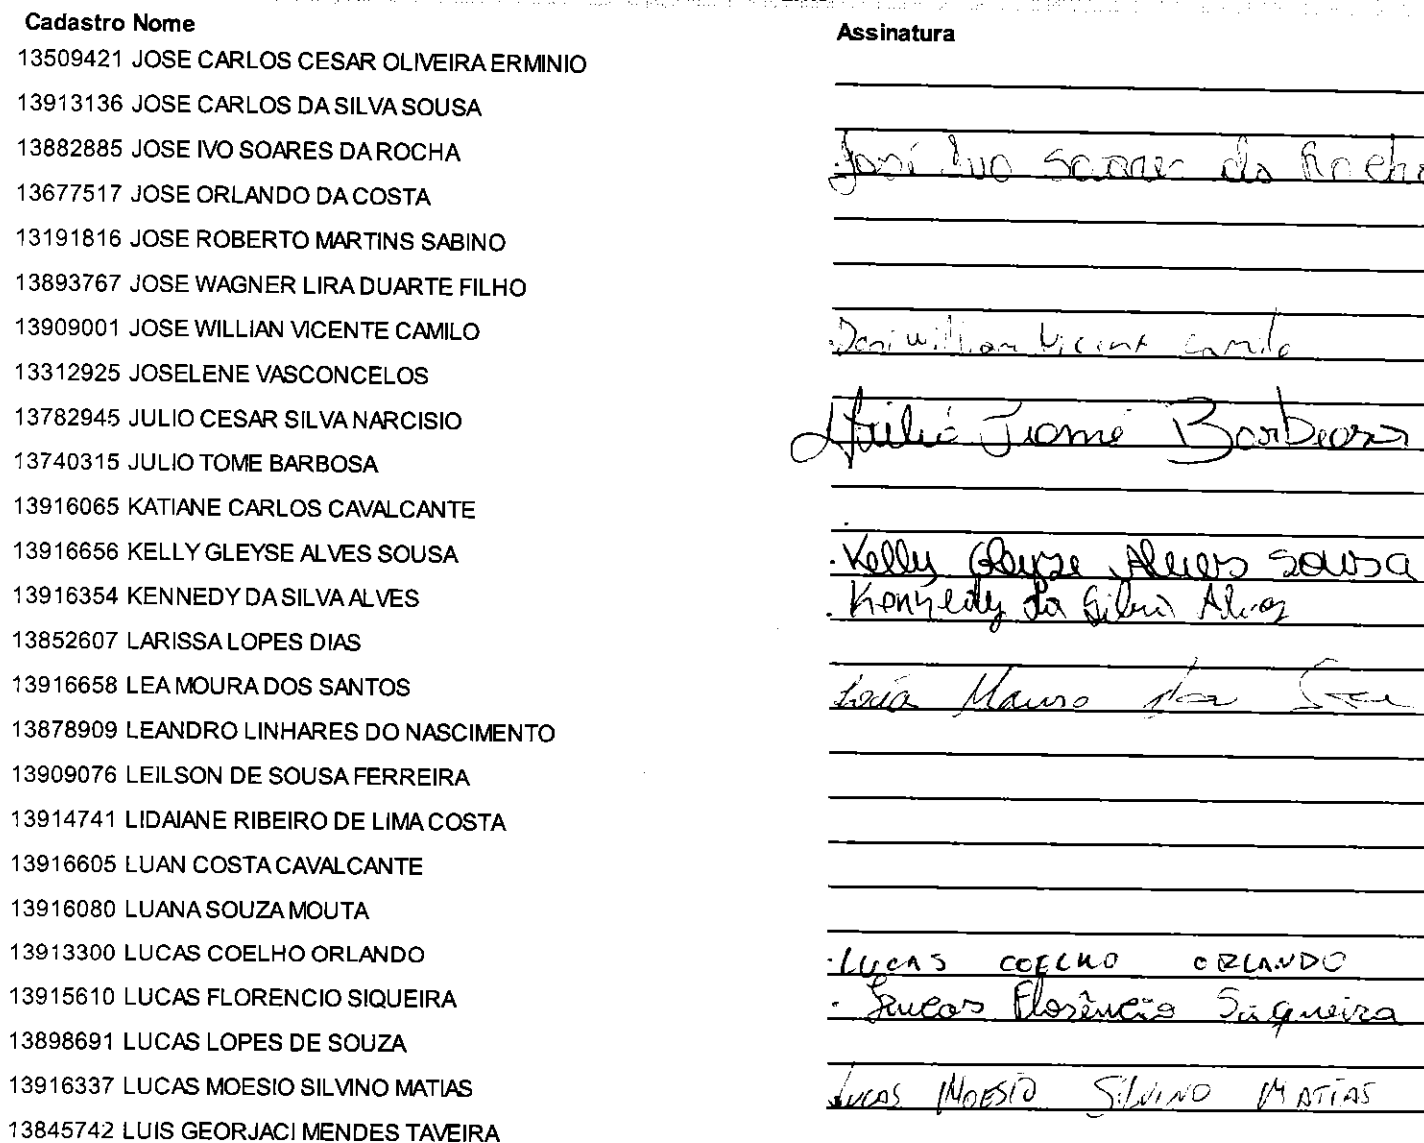 Cadastro Nome Assinatura
13509421 JOSE CARLOS CESAR OLIVEIRA ERMINIO
13913136 JOSE CARLOS DA SILVA SOUSA
13882885 JOSE IVO SOARES DA ROCHA José Ivo Soares da Rocha
13677517 JOSE ORLANDO DA COSTA
13191816 JOSE ROBERTO MARTINS SABINO
13893767 JOSE WAGNER LIRA DUARTE FILHO
13909001 JOSE WILLIAN VICENTE CAMILO José Willian Vicente Camilo
13312925 JOSELENE VASCONCELOS
13782945 JULIO CESAR SILVA NARCISIO
13740315 JULIO TOME BARBOSA Júlio Tomé Barbosa
13916065 KATIANE CARLOS CAVALCANTE
13916656 KELLY GLEYSE ALVES SOUSA Kelly Gleyse Alves Sousa
13916354 KENNEDY DA SILVA ALVES Kennedy da Silva Alves
13852607 LARISSA LOPES DIAS
13916658 LEA MOURA DOS SANTOS Moura dos
13878909 LEANDRO LINHARES DO NASCIMENTO
13909076 LEILSON DE SOUSA FERREIRA
13914741 LIDAIANE RIBEIRO DE LIMA COSTA
13916605 LUAN COSTA CAVALCANTE
13916080 LUANA SOUZA MOUTA
13913300 LUCAS COELHO ORLANDO LUCAS COELHO ORLANDO
13915610 LUCAS FLORENCIO SIQUEIRA Lucas Florêncio Siqueira
13898691 LUCAS LOPES DE SOUZA
13916337 LUCAS MOESIO SILVINO MATIAS LUCAS MOESIO SILVINO MATIAS
13845742 LUIS GEORJACI MENDES TAVEIRA